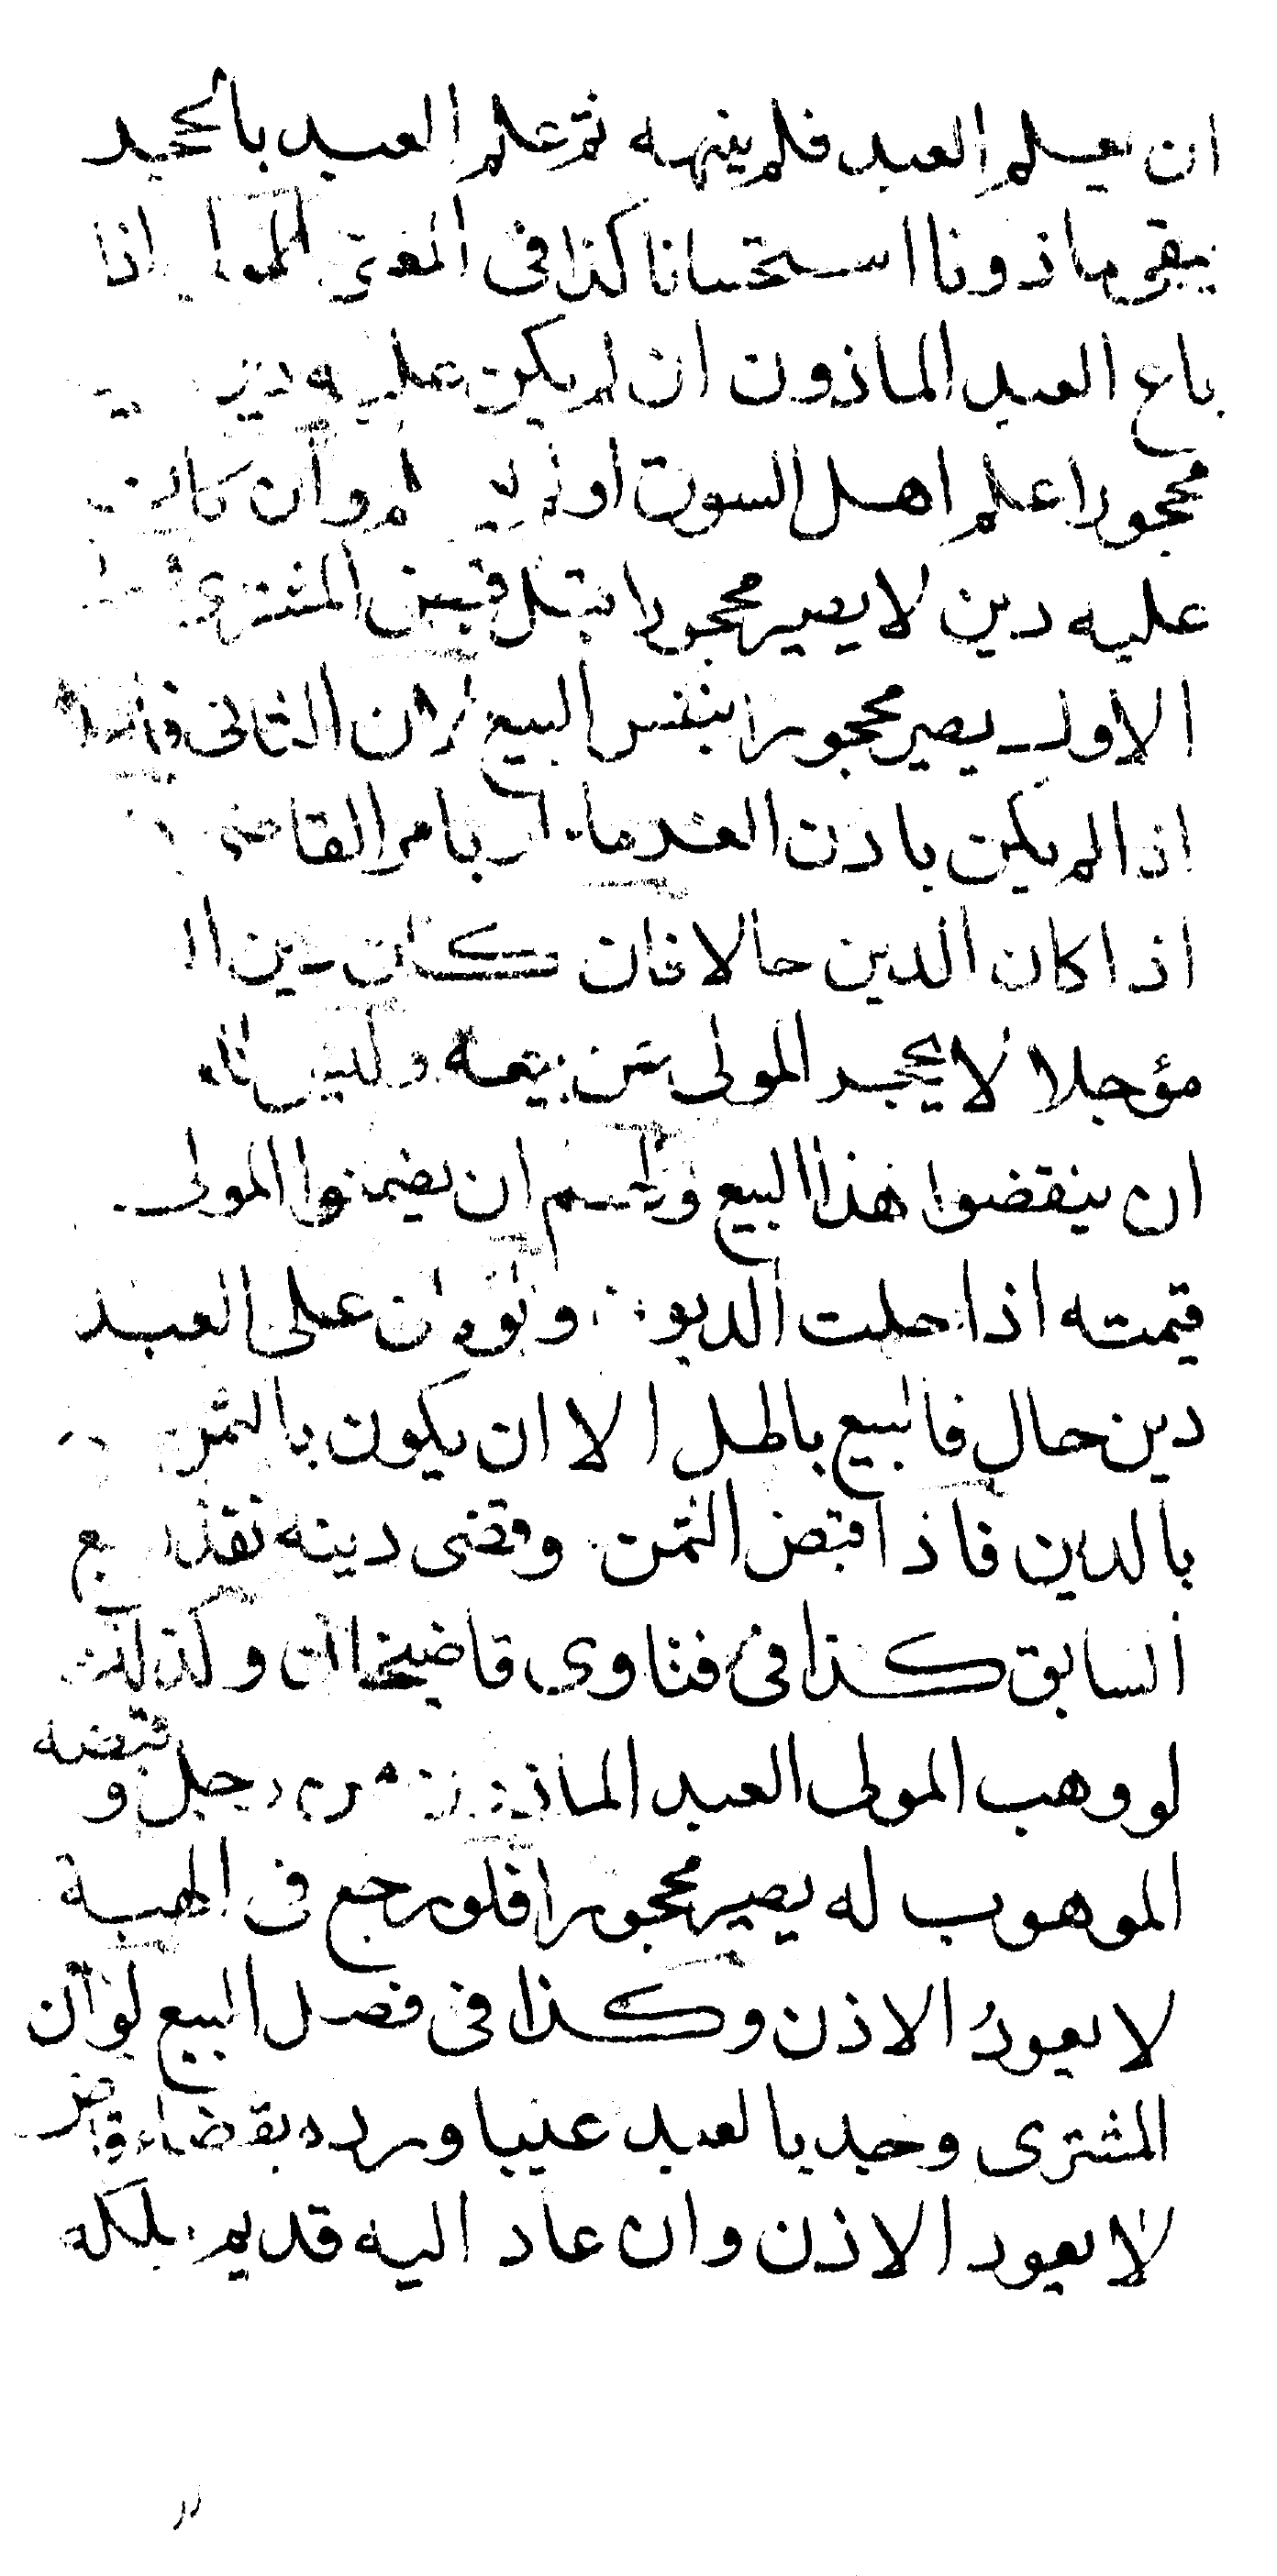 ان يعلم العبد فلم ينهه ثم علم العبد بالحجر
يبقى ماذونا استحسانا كذا فى المغنى المولى اذا
باع العبد الماذون ان لم يكن عليه دين
محجورا علم اهل السوق او لم وان كان
عليه دين لا يصير محجورا قبل قبض المشترى
الاول يصير محجورا بنفس البيع لان الثانى فاسد
اذا لم يكن باذن الغرما او بامر القاضى
اذا كان الدين حالا فان كان دين
مؤجلا لا يحجر المولى عن بيعه وليس
ان ينقضوا هذا البيع ولهم ان يضمنوا المولى
قيمته اذا حلت الديون ولو كان على العبد
دين حال فالبيع باطل الا ان يكون بالثمن
بالدين فاذا قبض الثمن وقضى دينه نفذ
السابق كذا فى فتاوى قاضيخان وكذلك
لو وهب المولى العبد الماذون من رجل وقبضه
الموهوب له يصير محجورا فلو رجع فى الهبة
لا يعود الاذن وكذا فى فصل البيع لو ان
المشترى وجد بالعبد عيبا ورده بقضاء قاض
لا يعود الاذن وان عاد اليه قديم ملكه